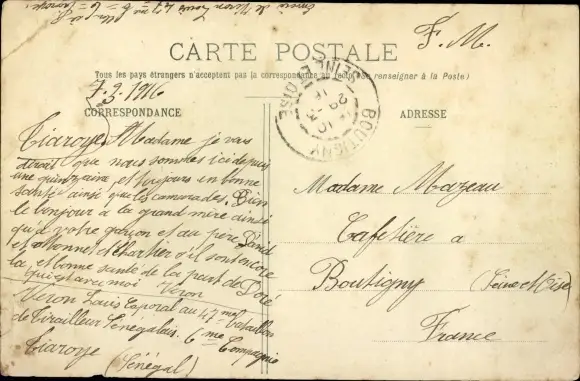 CARTE POSTALE
F. M.
Tous les pays étrangers n'acceptent pas la correspondance au recto (se renseigner à la Poste)
7.3.1916
CORRESPONDANCE
ADRESSE
SEINE ET OISE
BOUTIGNY
29-3
16
Tiaroye, Madame je vous
dirait que nous sommes ici depuis
une quinzaine, et toujours en bonne
santé ainsi que les camarades, Bien
le bonjour a la grand mère ainsi
qu'a votre garçon et au père David
et Monnet et Chartier s'il sont encore
la, et bonne santé de la part de Doré
qui est avec moi Véron
Véron Louis Caporal au 47me bataillon
de Tirailleur Sénégalais. 6me Compagnie
Tiaroye (Sénégal)
Madame Mazeau
Cafetière a
Boutigny (Seine et Oise)
France